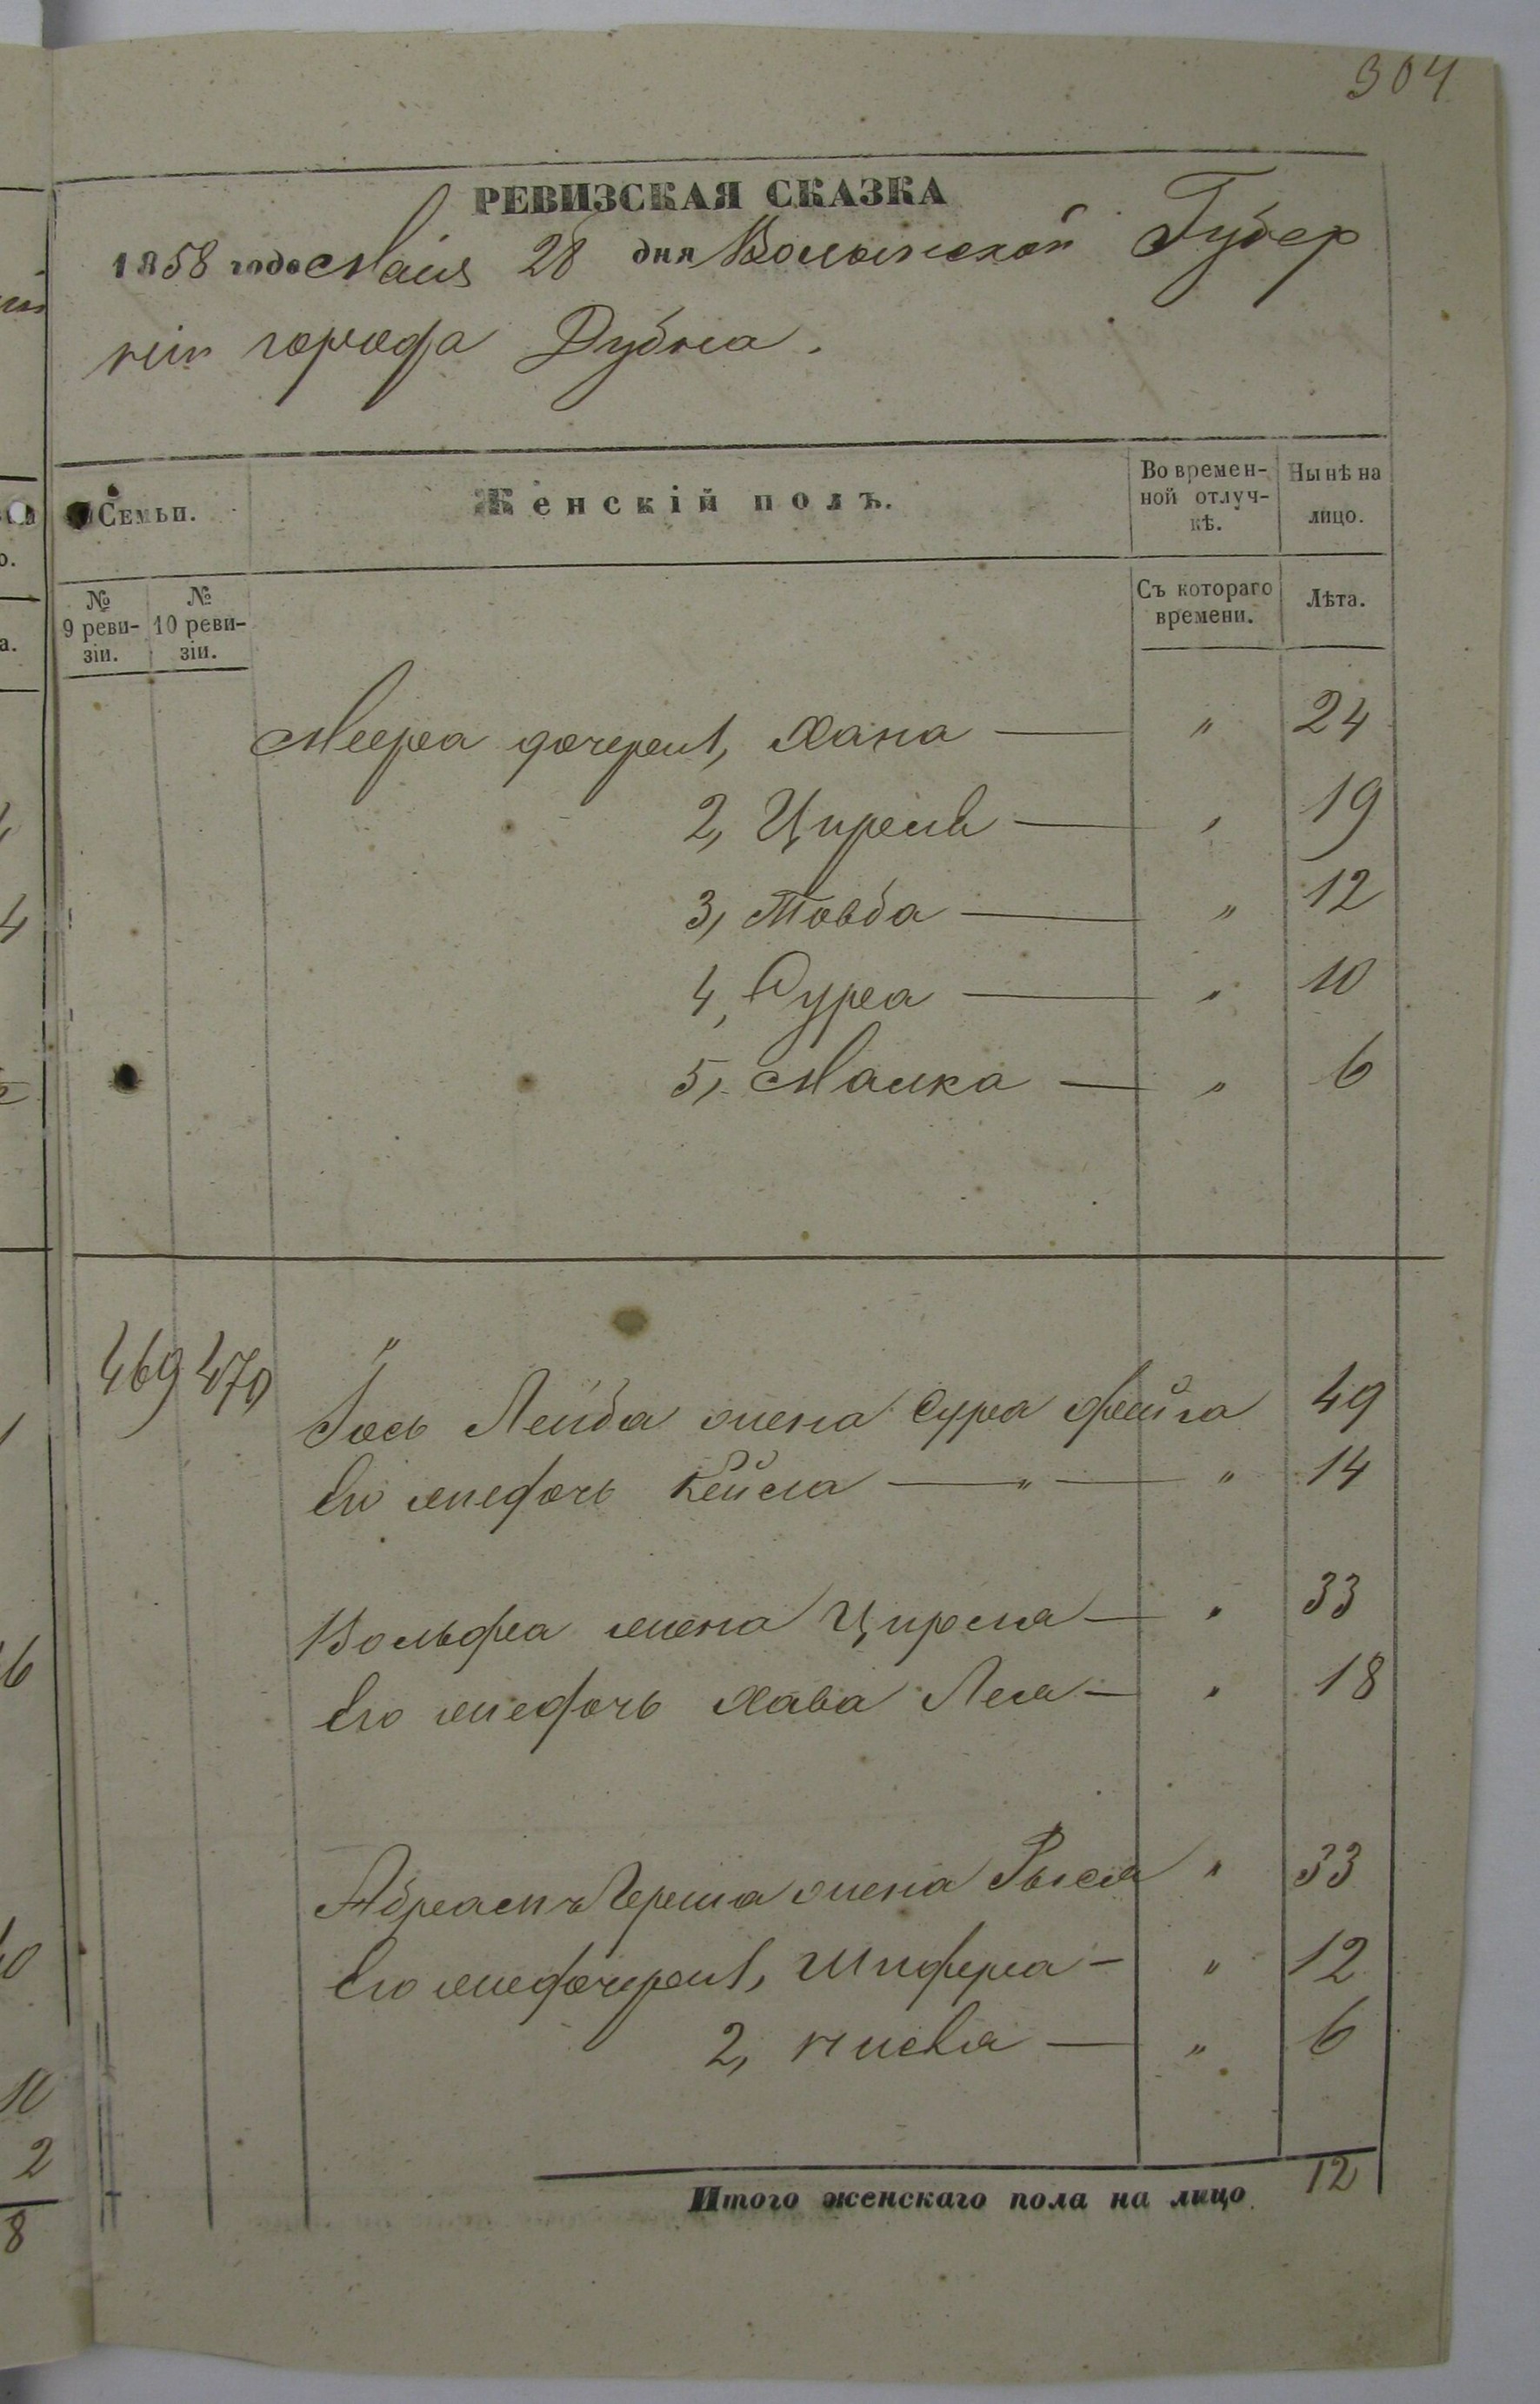 304
РЕВИЗСКАЯ СКАЗКА
1858 года Маія 28 дня Волынской Губер
ніи города Дубна.
Семьи.
Женскій полъ.
Во времен-
ной отлуч-
кѣ.
Нынѣ на
лицо.
№
9 реви-
зіи.
№
10 реви-
зіи.
Съ котораго
времени.
Лѣта.
Меера дочери 1, Хана — " 24
2, Ципра — " 19
3, Товба — " 12
4, Сура — " 10
5, Малка — " 6
469 470 "
Іось Лейба жена Сура Фейга 49
Его жъ дочь Кейла — " — " 14
Вольфа жена Ципра — " 33
Его жъ дочь Хава Лея — " 18
Абрамъ Герша жена Рыся " 33
Его жъ дочери 1, Шифра — " 12
2, — " 6
Итого женскаго пола на лицо 12